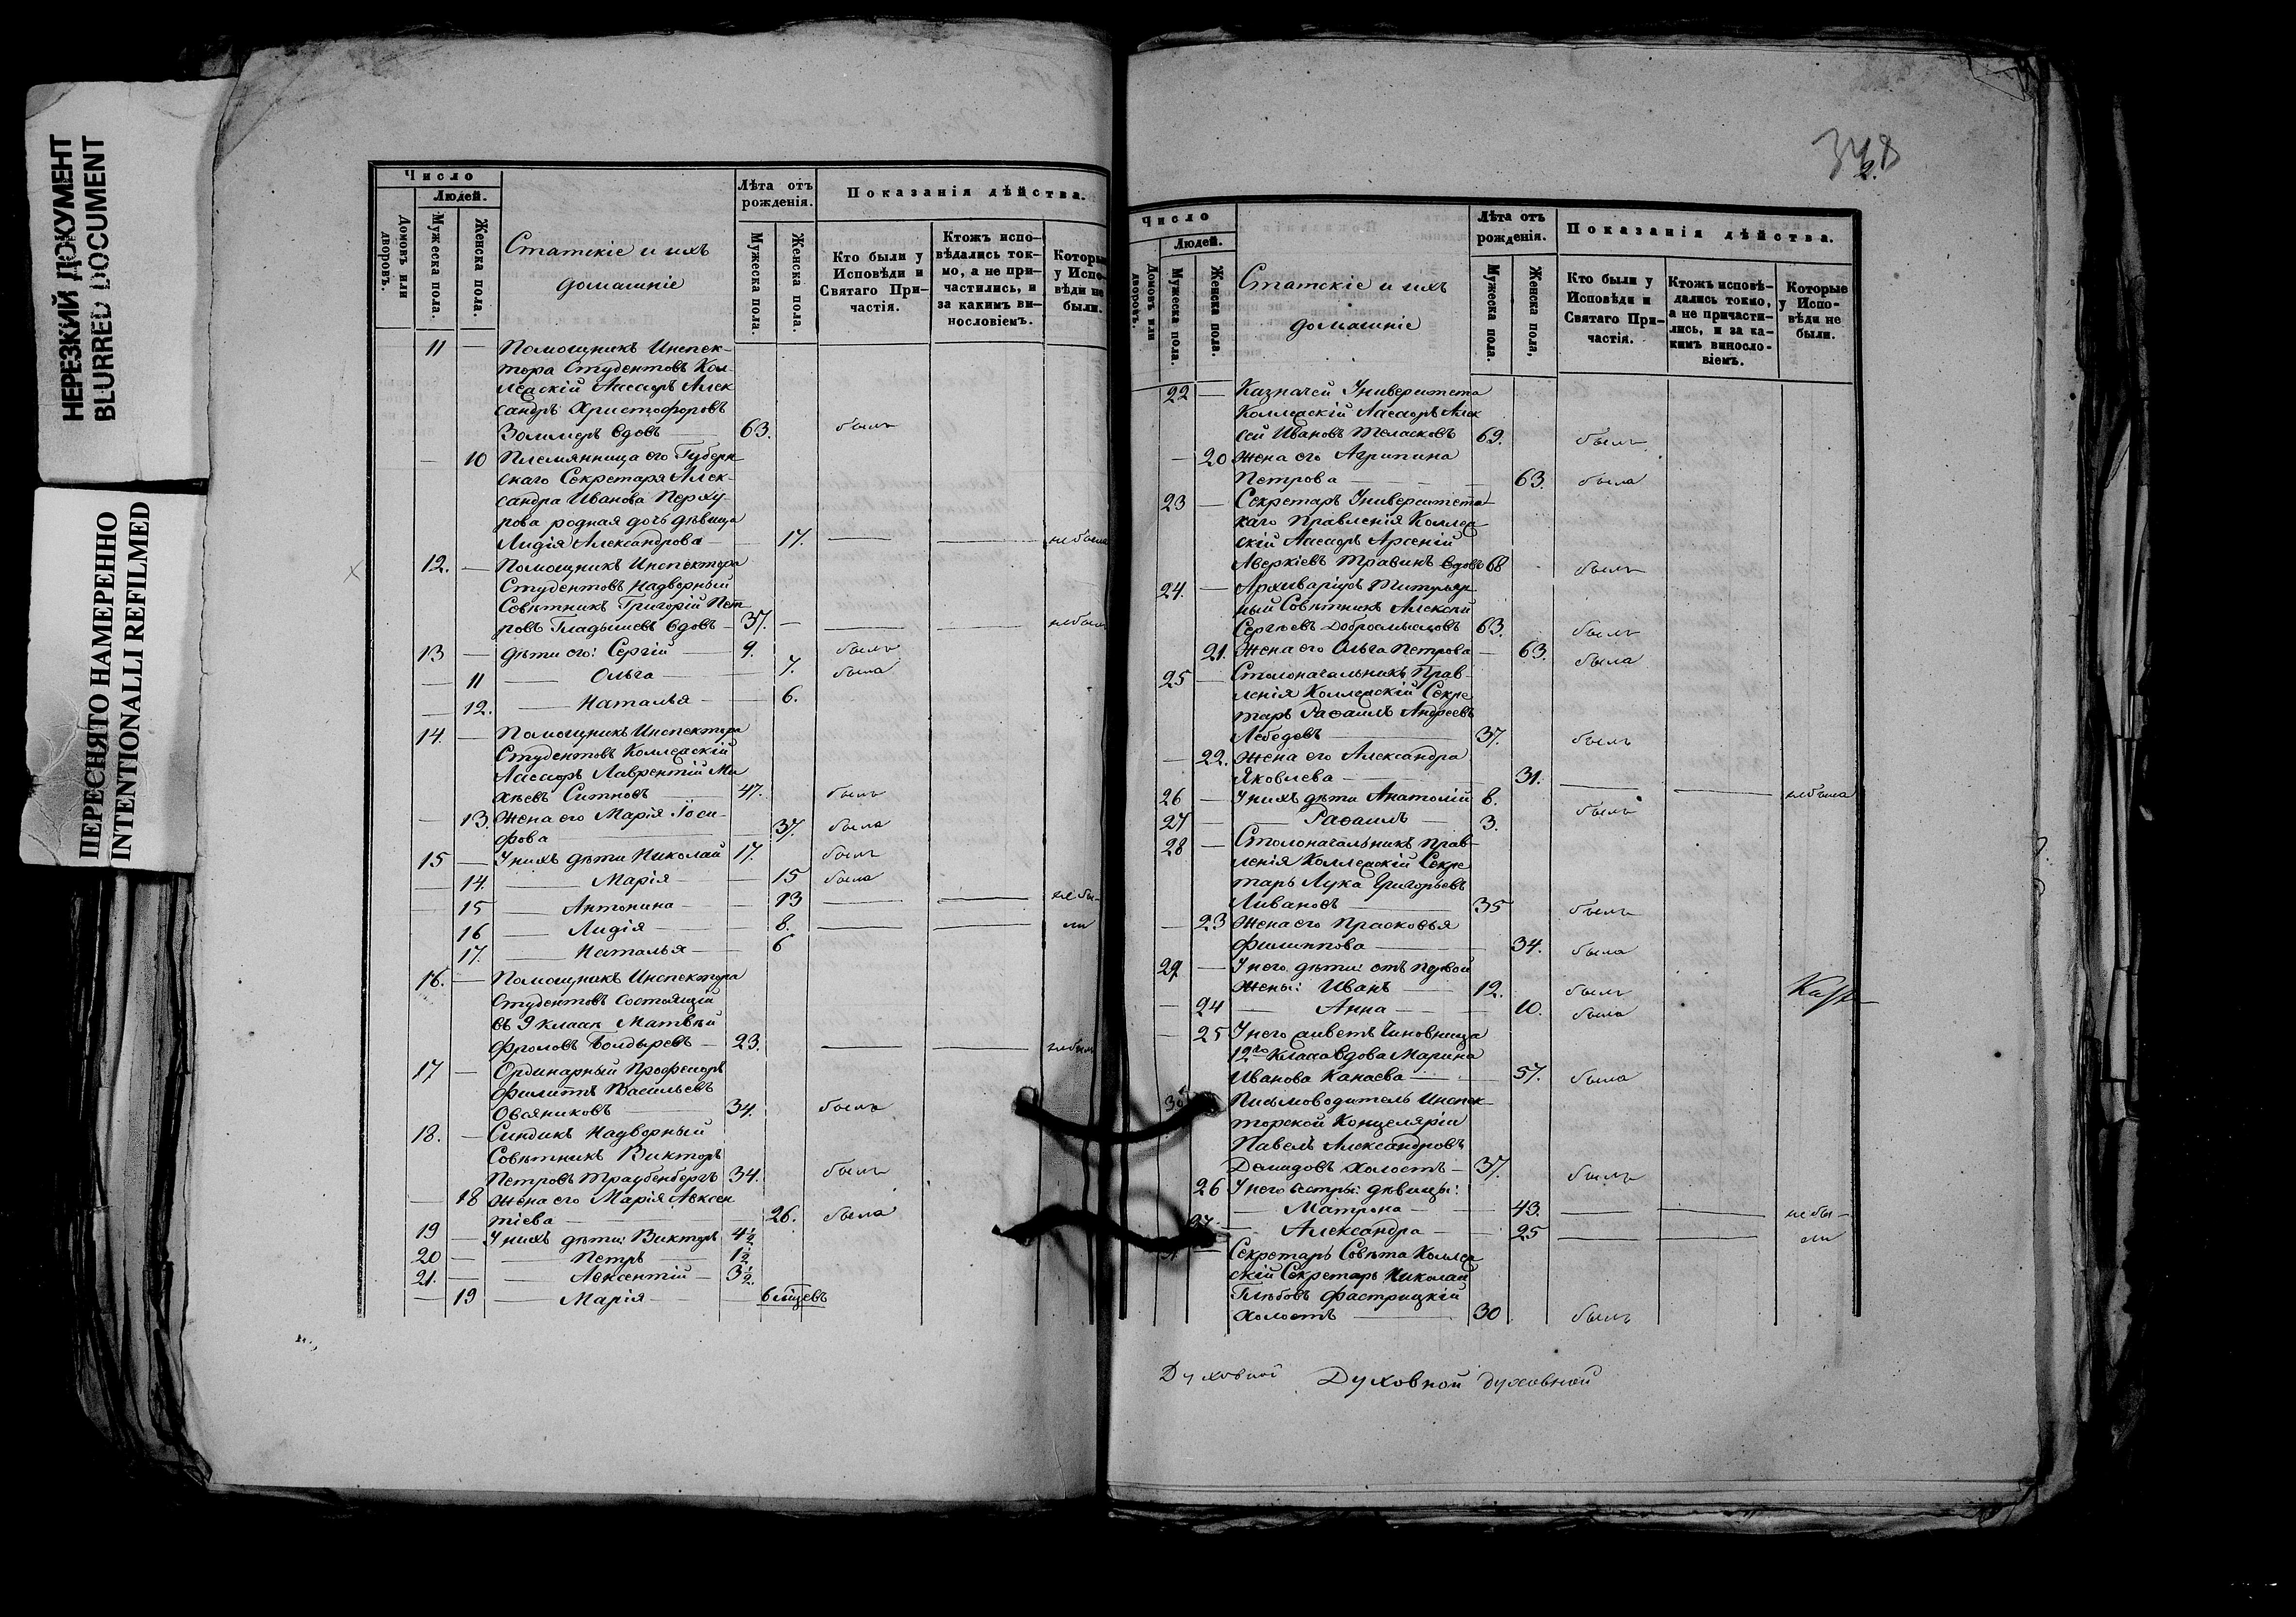 НЕРЕЗКИЙ ДОКУМЕНТ
BLURRED DOCUMENT
ПЕРЕСНЯТО НАМЕРЕННО
INTENTIONALLI REFILMED
Число
Людей.
Домовъ или дворовъ.
Мужеска пола.
Женска пола.
Статскіе и ихъ
домашніе
Лѣта отъ рожденія.
Мужеска пола.
Женска пола.
Показанія дѣйства.
Кто были у Исповѣди и Святаго Причастія.
Ктожъ исповѣдались токмо, а не причастились, и за какимъ винословіемъ.
Которые у Исповѣди не были.
11 — Помощникъ Инспек-
тора Студентовъ Кол-
лежскій Ассесоръ Алек
сандръ Христофоровъ
вдовъ — 63. былъ
— 10 Племянница его Губерн
скаго Секретаря Алек-
сандра Иванова
рова родная дочь дѣвица
Лидія Александрова — 17. — — не была
12. — Помощникъ Инспектора
Студентовъ Надворный
Совѣтникъ Григорій Пет
ровъ Гладышевъ вдовъ — 37. — — — не былъ
13 — дѣти его: Сергій — 9. былъ
— 11 — Ольга — 7. была
— 12. — Наталья — 6.
14. — Помощникъ Инспектора
Студентовъ Коллежскій
Ассесоръ Лаврентій Ми
хѣевъ Ситновъ — 47. былъ
— 13. Жена его Марія Іоси-
фова — 37. была
15 — У нихъ дѣти Николай 17. былъ
— 14. — Марія — 15 была
— 15 — Антонина — 13 — — не бы-
16 — Лидія — 8. — — ли
17. — Наталья — 6
16. — Помощникъ Инспектора
Студентовъ Состоящій
въ 9 классѣ Матвѣй
Фроловъ Болдыревъ — 23. — — не былъ
17 — Ординарный Профессоръ
Филиппъ Васильевъ
Овсяниковъ — 34. былъ
18. — Синдикъ Надворный
Совѣтникъ Викторъ
Петровъ Траубенбергъ 34. былъ
— 18 Жена его Марія Авксен
тіева — 26. была
19 — У нихъ дѣти: Викторъ 4½
20 — — Петръ — 1½
21. — — Авксентій — 3½.
— 19 — Марія — 6 мѣсцевъ
348
2.
Число
Людей.
Домовъ или дворовъ.
Мужеска пола.
Женска пола.
Статскіе и ихъ
домашніе
Лѣта отъ рожденія.
Мужеска пола.
Женска пола,
Показанія дѣйства.
Кто были у Исповѣди и Святаго Причастія.
Ктожъ исповѣдались токмо, а не причастились, и за какимъ винословіемъ.
Которые у Исповѣди не были.
22 — Казначей Университета
Коллежскій Ассесоръ Алек
сѣй Ивановъ 69. былъ
— 20 Жена его Агрипина
Петрова — 63. была
23 — Секретарь Университетс
каго Правленія Коллеж
скій Ассесоръ Арсеній
Аверкіевъ Травинъ вдовъ 68 былъ
24. — Архиваріусъ Титуляр
ный Совѣтникъ Алексѣй
Сергѣевъ Добросмысловъ 63. былъ
21. Жена его Ольга Петрова — 63. была
25 — Столоначальникъ Прав-
ленія Коллежскій Секре
тарь Рафаилъ Андреевъ
Лебедевъ — 37. былъ
— 22. Жена его Александра
Яковлева — 31. — — не была
26 — У нихъ дѣти Анатолій 8. былъ
27 — — Рафаилъ — 3.
28 — Столоначальникъ Прав-
ленія Коллежскій Секре
тарь Лука Григорьевъ
Ливановъ — 35 былъ
— 23 Жена его Прасковья
Филиппова — 34. была
29 — У него дѣти: отъ первой
жены: Иванъ — 12. былъ
— 24 — Анна — 10. была
— 25 У него живетъ Чиновница
12го Класса вдова Марина
Иванова Канаева — 57. была
30 Письмоводитель Инспек
торской Концеляріи
Павелъ Александровъ
Демидовъ холостъ — 37. былъ
26 У него сестры: дѣвицы:
— Матрона — 43. — — не бы-
27. — Александра — 25 — — ли
31 — Секретарь Совѣта Коллеж
скій Секретарь Николай
Глѣбовъ Фастрицкій
холостъ — 30 былъ
Духовной Духовной духовной